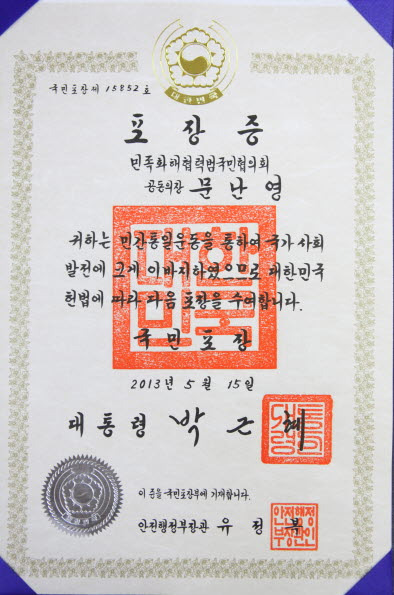 대한민국
국민포장제 15852호
포장증
민족화해협력범국민협의회
공동의장 문난영
귀하는 민간통일운동을 통하여 국가 사회
발전에 크게 이바지하였으므로 대한민국
헌법에 따라 다음 포장을 수여합니다.
국민포장
2013년 5월 15일
대통령 박근혜
이 증을 국민포장부에 기재합니다.
안전행정부장관 유정복
안전행정
부장관인